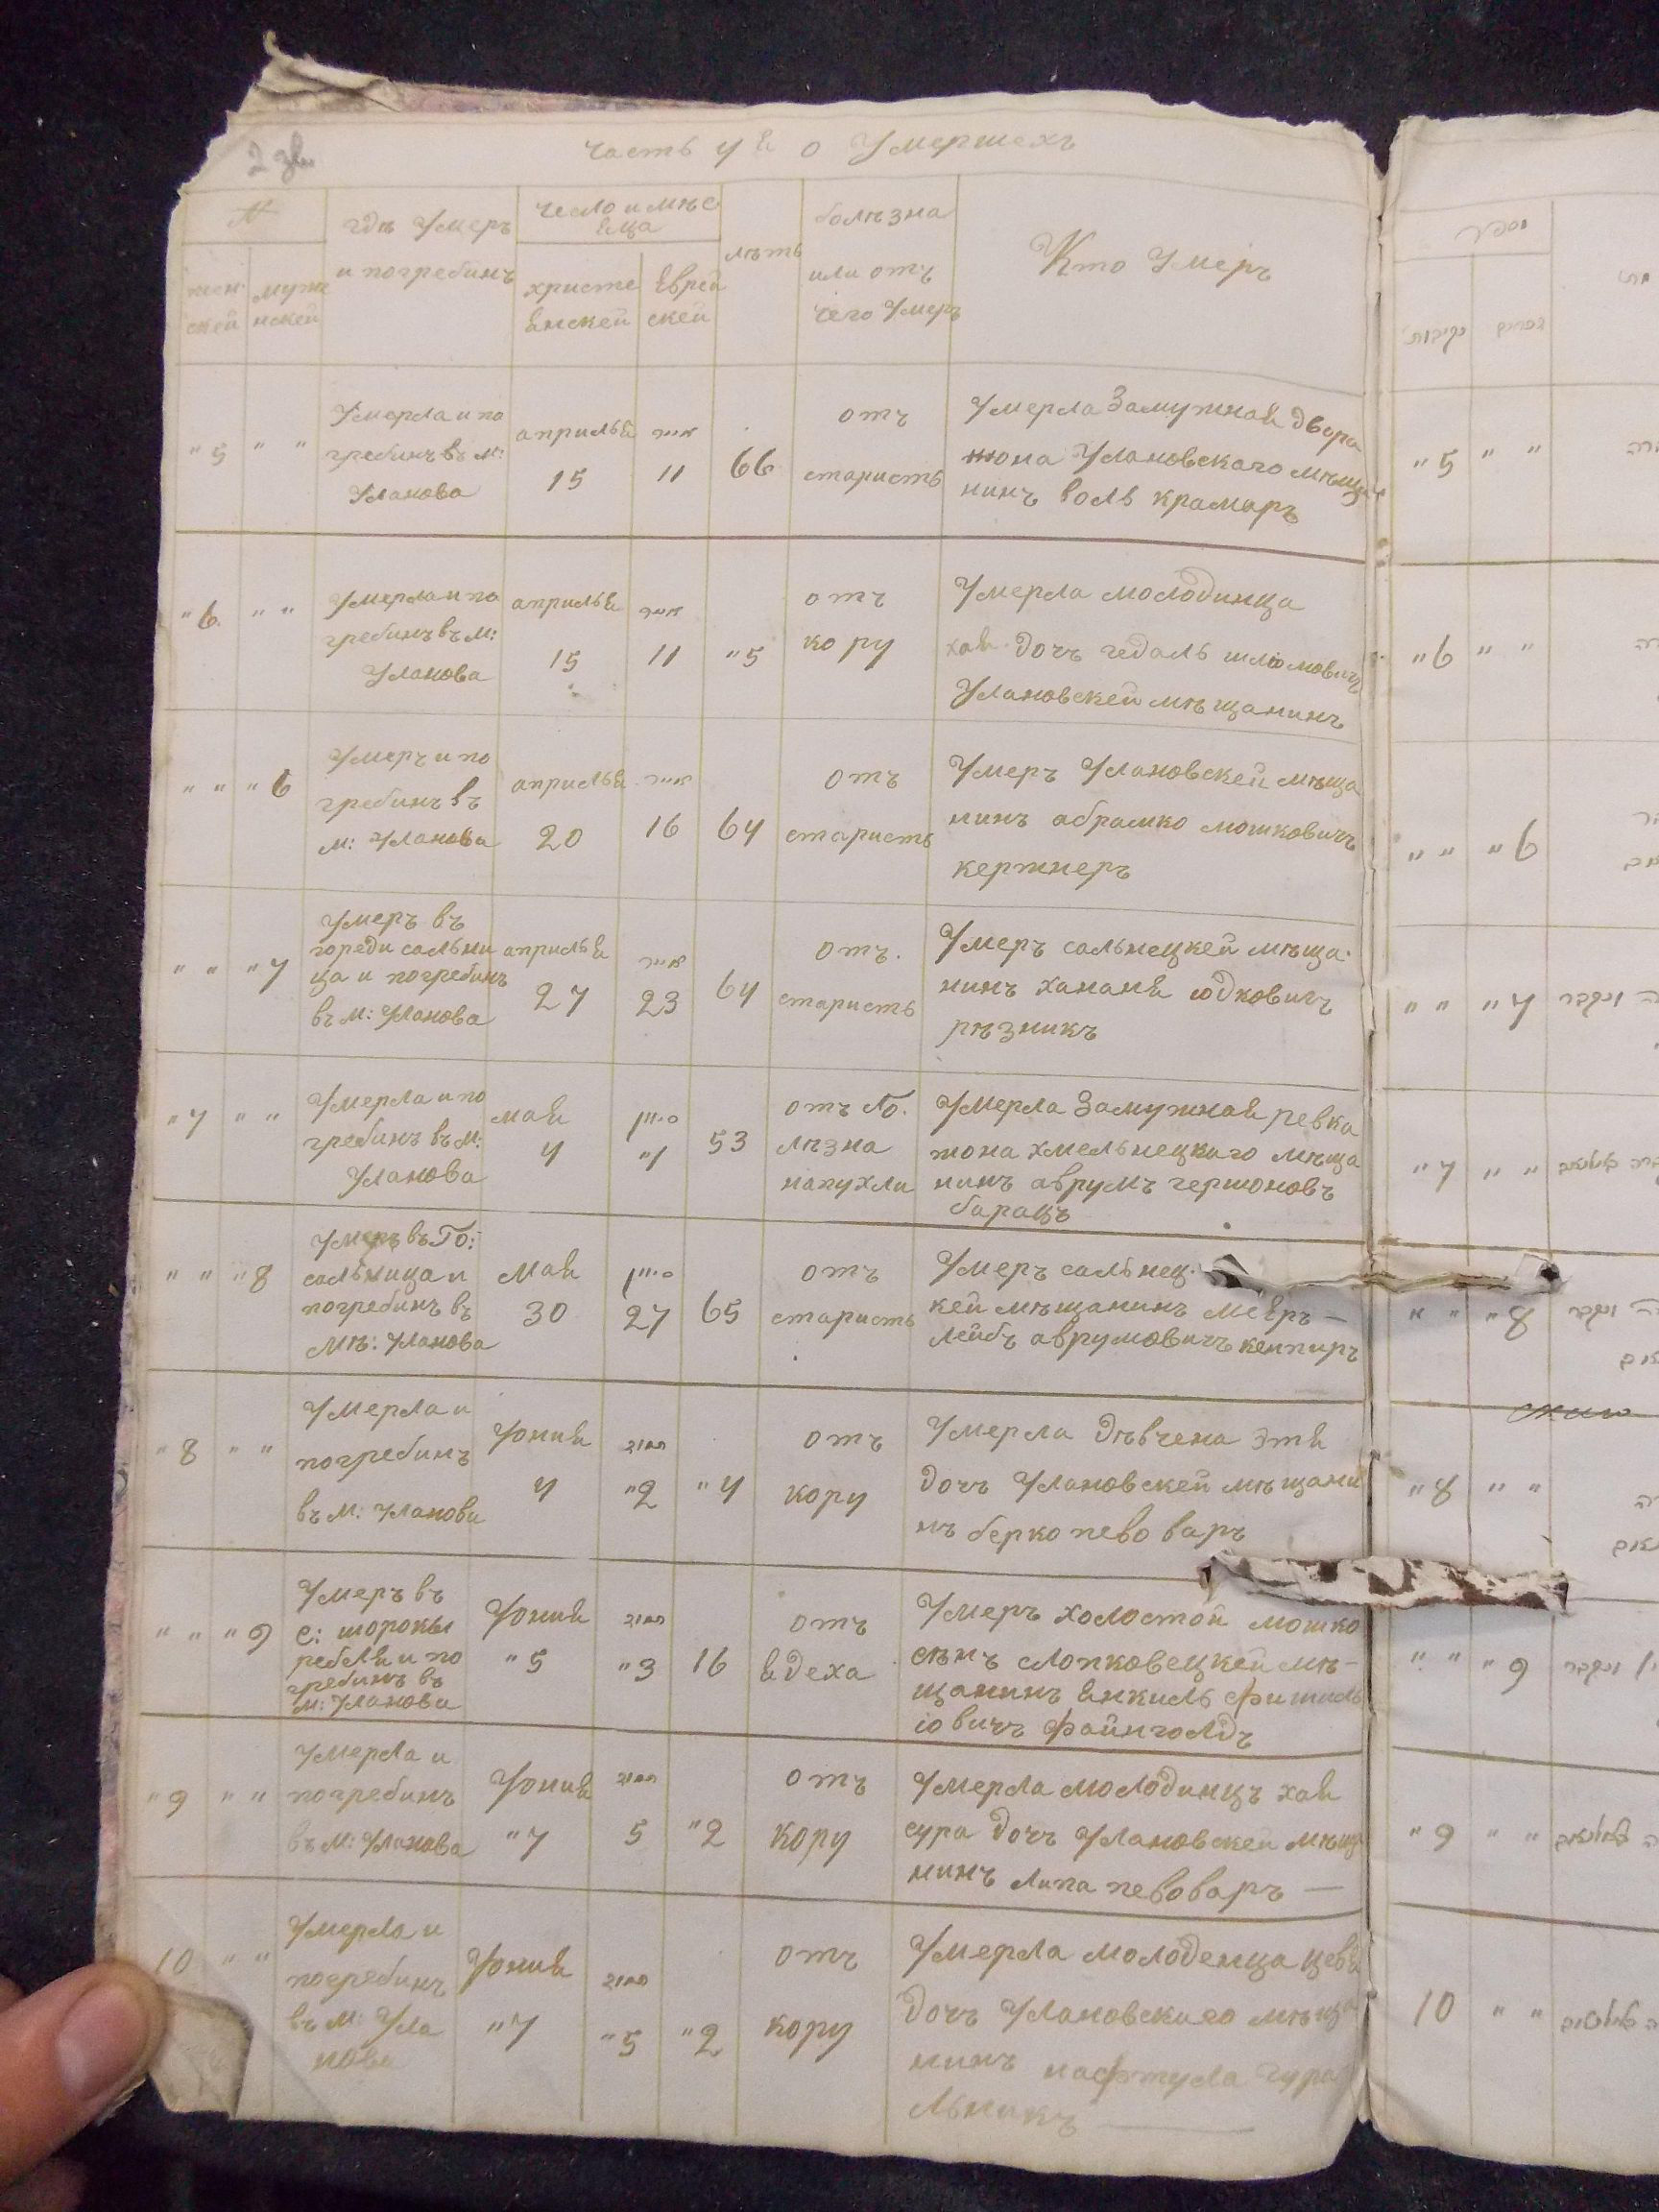 2 зв.
часть 4 я о Умершехъ
№
гдѣ Умеръ
и погребинъ
число и мѣс
Еца
лѣтъ
болѣзна
или отъ
чего Умеръ
Кто Умеръ
жен
ской
муже
нской
христе
Енскей
Еврей
скей
"5 " "
Умерла и по
гребинъ въ м:
Уланова
априлья
15
11
66
отъ
старисть
Умерла Замужная двора
жона Улановскаго мѣща
нинъ воль крамаръ
"6 " "
Умерла и по
гребинъ въ м:
Уланова
априлья
15
11
"5
отъ
кору
Умерла молодинца
хая дочъ гедаль шлюмовичъ
Улановскей мѣщанинъ
" " "6
Умеръ и по
гребинъ въ
м: Уланова
априлья
20
16
64
отъ
старисть
Умеръ Улановскей мѣща
нинъ абрамко мошковичъ
кержнеръ
" " "7
Умеръ въ
городи сальни
ца и погребинъ
въ м: Уланова
априлья
27
23
64
отъ
старисть
Умеръ сальнецкей мѣща
нинъ хананя юдковичъ
рѣзникъ
"7 " "
Умерла и по
гребинъ въ м:
Уланова
май
4
"1
53
отъ бо
лѣзна
напухли
Умерла Замужная ревка
жона хмельнецкаго мѣща
нинъ аврумъ гершоновъ
барацъ
" " "8
Умеръ въ Го:
сальница и
погребинъ въ
мѣ: Уланова
май
30
27
65
отъ
старисть
Умеръ сальнец
кей мѣщанинъ меЕръ —
лейбъ аврумовичъ кеппиръ
"8 " "
Умерла и
погребинъ
въ м: Уланова
Юния
4
"2
"4
отъ
кору
Умерла дѣвчена этя
дочъ Улановскей мѣщани
нъ берко певоваръ
" " "9
Умеръ въ
с: широкы
ребля и по
гребинъ въ
м: Уланова
Юния
"5
"3
16
отъ
Ъдеха
Умеръ холостой мошко
сынъ слопковецкей мѣ-
щанинъ Енкиль фишиль
іовичъ файнголдъ
"9 " "
Умерла и
погребинъ
въ м: Уланова
Юния
"7
5
"2
отъ
кору
Умерла молодинцъ хая
сура дочъ Улановскей мѣща
нинъ липа певоваръ —
10 " "
Умерла и
погребинъ
въ м: Ула
нова
Юния
"7
"5
"2
отъ
кору
Умерла молоденца цевя
дочъ Улановскаго мѣща
нинъ нафтула гура
льникъ —
"5 " "
"6 " "
" " "6
" " "7
"7 " "
" " "8
"8 " "
" " "9
"9 " "
10 " "